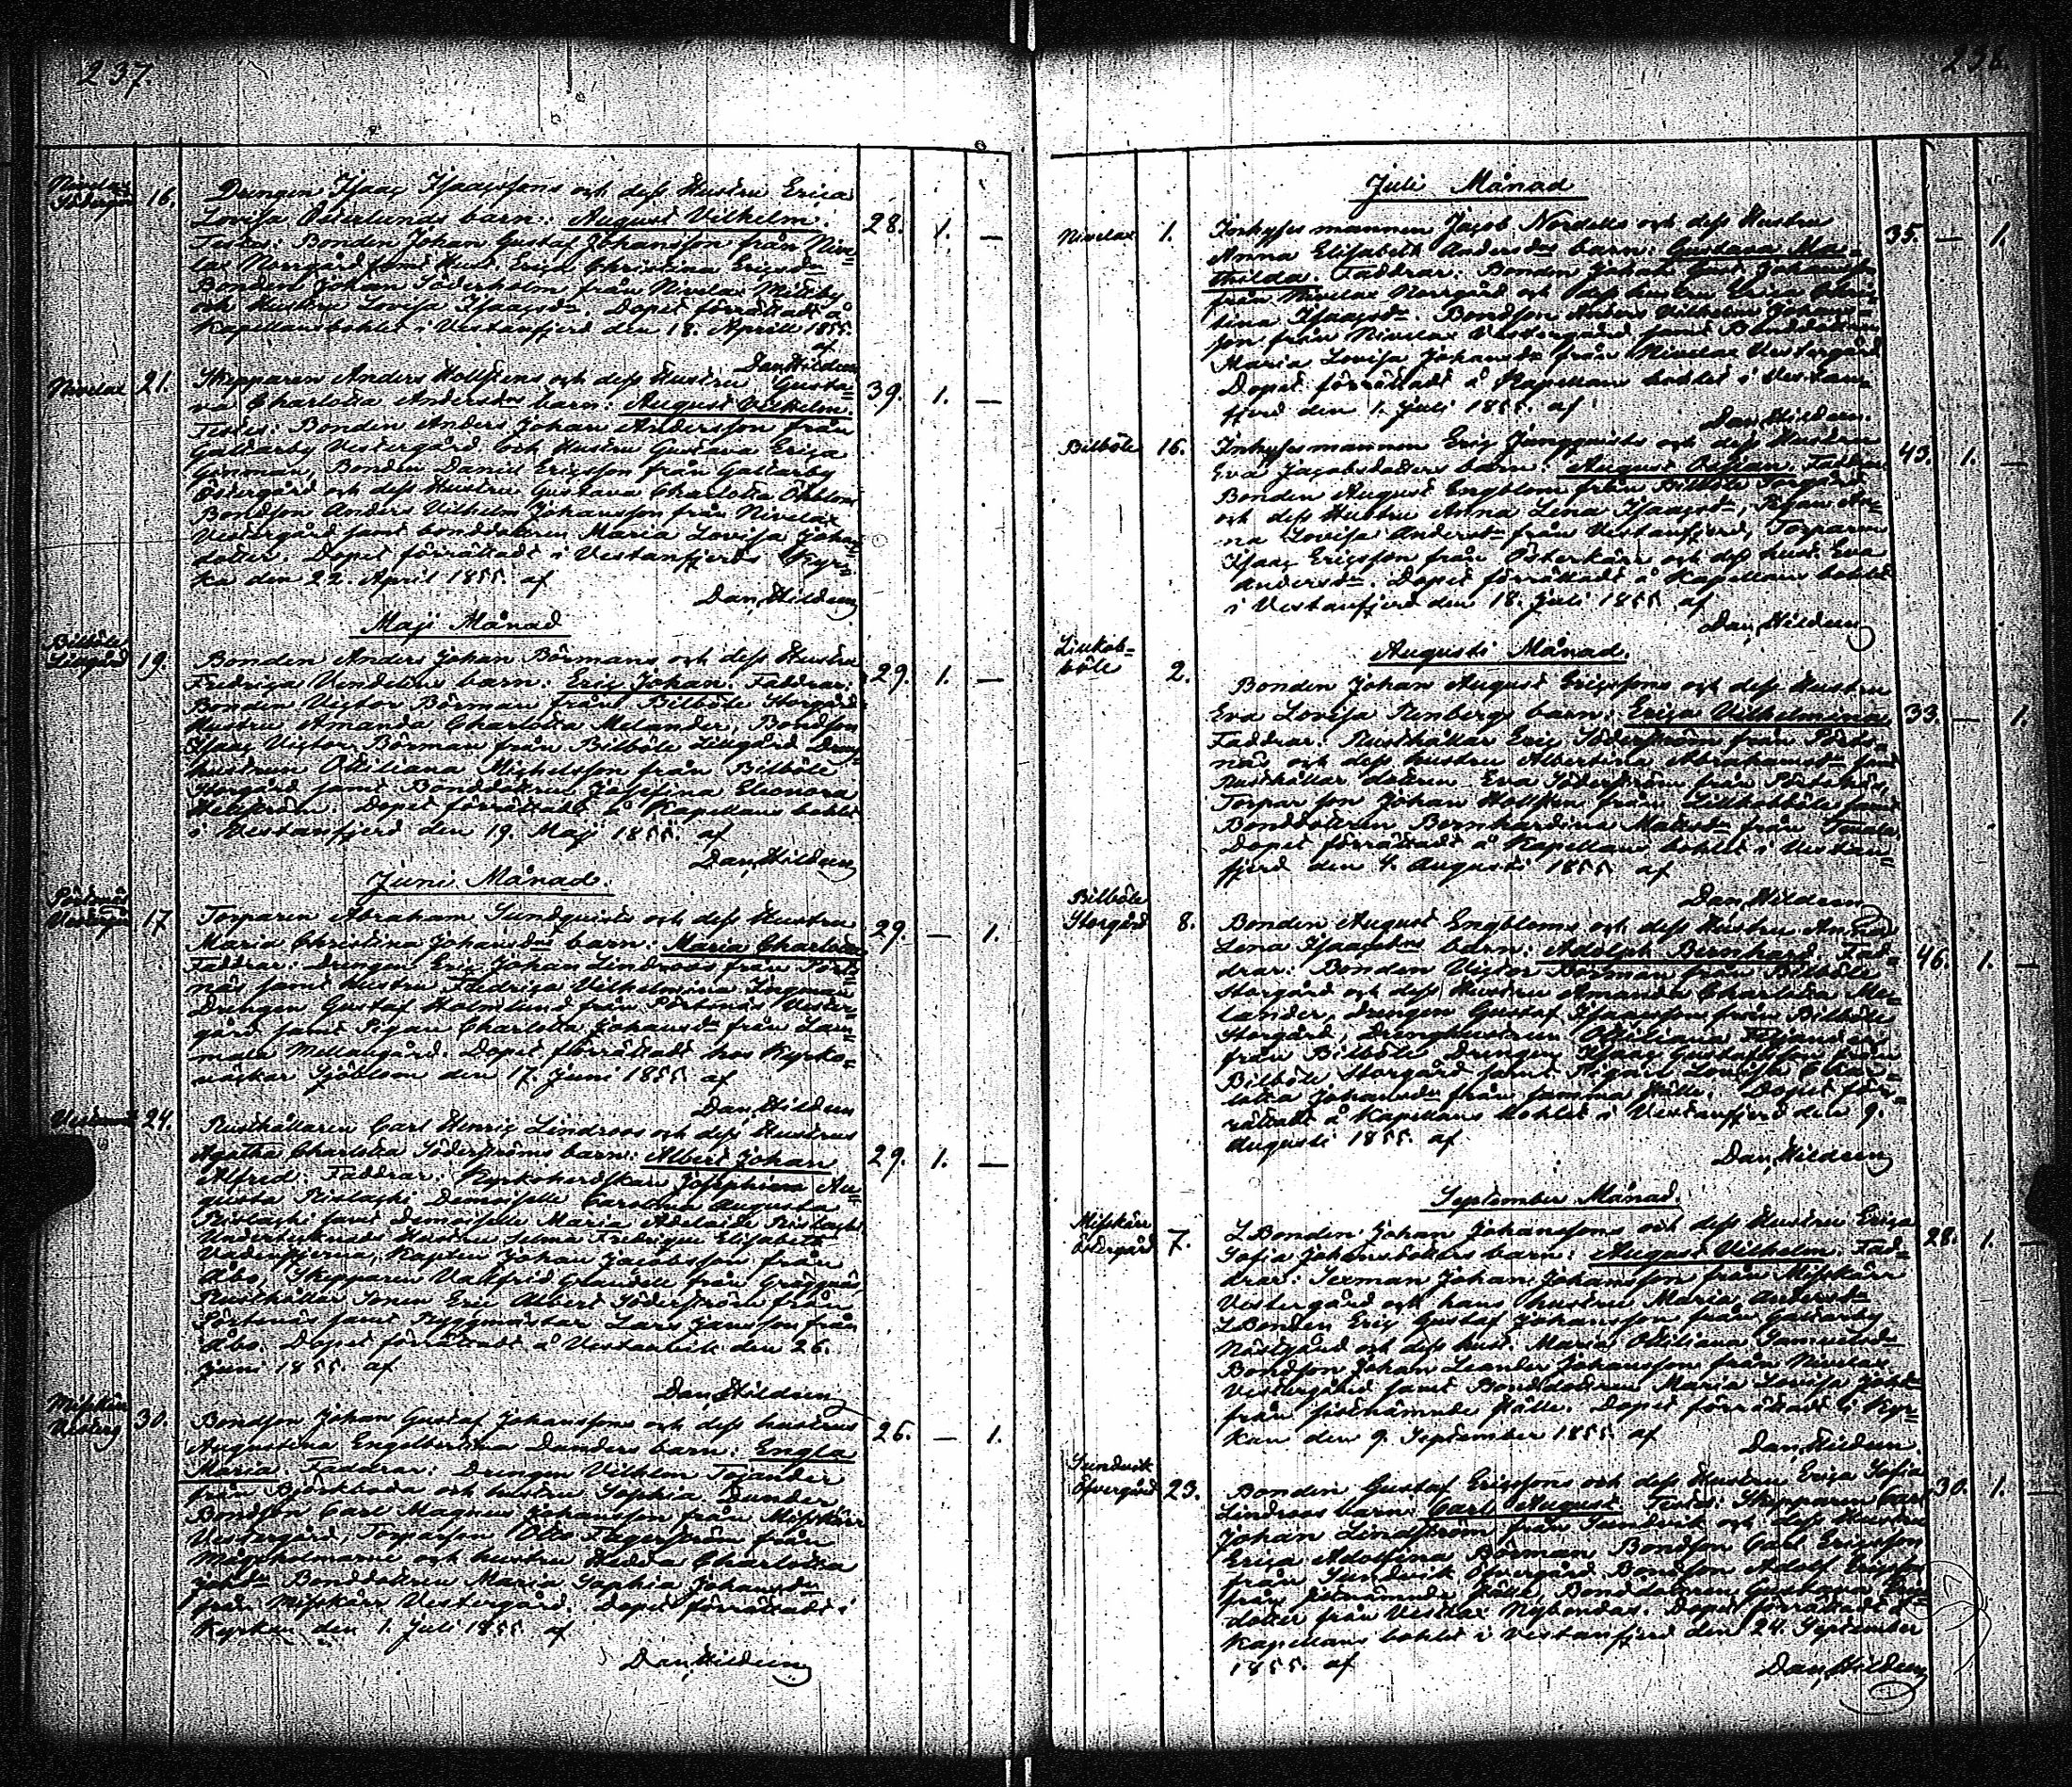 237.
Nivelax
Södergård 16.
Drengen Isaac Isaacssons och dess Hustru Erica
Lovisa Österlunds barn: August Vilhelm. 28. 1. —
Testes: Bonden Johan Gustaf Johansson från Nive=
lax Norrgård samt Hust. Erica Christina Ericsdr
Bonden Johan Söderholm från Nivelax
och Hustru Lovisa Isaacsdr. Dopet förrättadt å
Kapellansbohlet i Vestanfjerd den 18. Aprill 1855.
af
Dan, Hildeen
Nivelax 21.
Skepparen Anders Hollstens och dess Hustru Gusta=
va Charlotta Andersdrs barn: August Vilhelm. 39. 1. —
Testes: Bonden Anders Johan Andersson från
Galtarby Vestergård och Hustru Gustava Erica
Bonden Daniel Ericsson från Galtarby
Östergård och dess Hustru Gustava Charlotta
Bondson Anders Vilhelm Johansson från Nivelax
Vestergård samt bonddottren Maria Lovisa Johans
dotter. Dopet förrättadt i Vestanfjerds Kyr=
ka den 22 April 1855 af
Dan, Hildeen
Maji Månad
Bilböle
Lillgård 19.
Bonden Anders Johan Börmans och dess Hustru
Fredrica barn: Eric Johan. Faddrar: 29. 1. —
Bonden Victor Börman från Bilböle Storgård
Hustru Amanda Charlotta Melander, Bondson
Isaac Victor Börman från Bilböle Lillgård
hustrun Ottiliana Michelsson från Bilböle
Storgård samt Bonddottren Josefina Eleonora
Dopet förrättadt å Kapellans bohlet
i Vestanfjerd den 19. Maji 1855. af
Dan, Hildeen
Juni Månad.
Pörtnäs
Vestergård 17
Torparen Abraham Sundqvists och dess Hustru
Maria Christina Johansdrs barn: Maria Charlotta 29. — 1.
Faddrar: Drengen Eric Johan Lindroos från Pört=
näs samt Hustru Fredrica Vilhelmina Ingman
Drengen Gustaf Holmlund från Pörtnäs Vester=
gård samt Pigan Charlotta Johansdr från Lam=
mala Mellangård. Dopet förrättadt hos Kyrko=
väktar Sjöblom den 17. Juni 1855 af
Dan, Hildeen
24.
Rusthållaren Carl Henric Lindroos och dess Hustrus
Agatha Charlotta Söderströms barn: Albert Johan 29. 1. —
Alfred. Faddrar: Kyrkoherdskan Josephina Au=
gusta Demoiselle Carolina Augusta
samt Demoiselle Maria Adelaide
Hustru Selma Fredrique Elisabeth
Kapten Johan Jacobsson från
Åbo, Skepparen Valfrid från
Rusthållar Sonen Eric Albert Söderström från
Pörtnäs samt Byggmästar Lars Jansson från
Åbo. Dopet förrättadt å den 26.
Juni 1855. af
Dan, Hildeen
Misskärr
30.
Bondson Johan Gustaf Johanssons och dess hustrus
Augustina Engelbertina Danders barn: Engla 26. — 1.
Maria. Faddrar: Drengen Vilhlm Tojander
från Björkboda och hustru Sophia Dander
Bondson Carl Magnus Johansson från Misskärr
Vestergård, Torparson Otto Fagerström från
Mågsholmarne och hustru Hedda Charlotta
Johsdr Bonddottren Maria Sophia Johansdr
från Misskärr Vestergård. Dopet förrättadt i
Kyrkan den 1. Juli 1855 af
Dan, Hildeen
238.
Juli Månad
Nivelax 1.
Inhyses mannen Jacob Nordells och dess Hustru 35. — 1.
Anna Elisabeth Andersdrs barn: Gustava Ma=
thilda. Faddrar: Bonden Johan Gust. Johansson
från Nivelax Norrgård och dess hustru Erica Chris=
tina Isaacsdr. Bondson Anders Vilhelm Johans=
son från Nivelax Vestergård samt Bonddottren
Maria Lovisa Johansdr från Nivelax Vestergård
Dopet förrättadt å Kapellans bohlet i Vestan=
fjerd den 1. Juli 1855. af
Dan, Hildeen.
Bilböle 16.
Inhyses mannen Eric Ljungqvists och dess Hustru 43. 1. —
Eva Jacobsdotters barn: August Ossian. Faddrar
Bonden August Engblom från Bilböle Storgård
och dess Hustru Anna Lena Isaacsdr, Pigan An=
na Lovisa Andersdr från Vestanfjerd, Torparen
Isaac Ericsson från Österkärr och dess hust. Eva
Andersdr. Dopet förrättadt å Kapellans bohlet
i Vestanfjerd den 18. Juli 1855 af
Dan, Hildeen
Augusti Månad.
böle 2.
Bonden Johan August Ericssons och dess Hustru
Eva Lovisa Stenbergs barn: Erica Vilhelmina 33. — 1.
Faddrar: Rusthållar Eric Söderström från Pört=
näs och dess hustru Albertina Abrahamsdr samt
Rusthållar dottren Eva Söderström från Pörtnäs,
Torpar son Johan Hollsten från samt
Bonddottren Bernhardina Matsdr från
Dopet förrättadt å Kapellans bohlet i Vestan=
fjerd den 4. Augusti 1855 af
Dan, Hildeen
Bilböle
Storgård 8.
Bonden August Engbloms och dess Hustru Anna
Lena Isaacsdrs barn: Adolph Bernhard. Fad= 46. 1. —
drar: Bonden Victor Börman från Bilböle
Storgård och dess Hustru Amanda Charlotta Me=
lander, Drengen Gustaf Isaacsson från Bilböle
Storgård, Drenghustrun Ottiliana
från Bilböle Drengen Isaac Gustafsson från
Bilböle Storgård samt Pigan Lovisa Char=
lotta Johansdr från samma ställe. Dopet för=
rättadt å Kapellans bohlet i Vestanfjerd den 9.
Augusti 1855. af
Dan, Hildeen
September Månad.
Misskärr
Östergård 7.
L. Bonden Johan Johanssons och dess Hustru Erica
Sofia Johansdotters barn: August Vilhelm. Fad= 28. 1. —
drar: Sexman Johan Johansson från Misskärr
Vestergård och hans hustru Maria Andersdr
L Bonden Eric Gustaf Johansson från Galtarby
Nästgård och dess hust. Maria Ottiliana Samuelsdr
Bondson Johan Leander Johansson från Nivelax
Vestergård samt Bonddottren Maria Lovisa Johsdr
från sistnämnde ställe. Dopet förrättadt i Kyr=
kan den 9. September 1855 af
Dan, Hildeen.
Sundvik
Öfvergård 23.
Bonden Gustaf Ericssons och dess Hustru Erica Sofia
Lindroos barn: Carl August. Testes: Skepparen Carl 30. 1. —
Johan Lindström från Sundvik och dess Hustru
Erica Adolfina Börman, Bondson Carl Ericsson
från Sundvik Öfvergård Bondson Adolf Ericsson
från sistnämnde ställe Bonddottren Gustava
dotter från Vestlax Nybondas. Dopet förrättadt å
Kapellans bohlet i Vestanfjerd den 24. September
1855. af
Dan, Hildeen